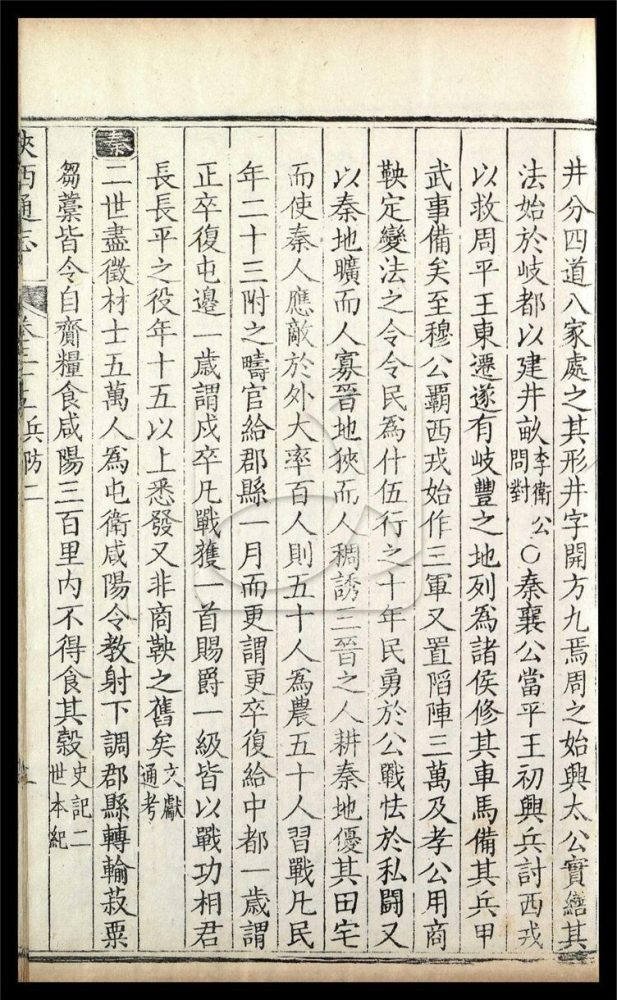 井分四道八家處之其形井字開方九焉周之始興太公實繕其
法始於岐都以建井畝李衛公問對○秦襄公當平王初興兵討西戎
以救周平王東遷遂有岐豐之地列為諸侯修其車馬備其兵甲
武事備矣至穆公霸西戎始作三軍又置陷陣三萬及孝公用商
鞅定變法之令令民為什伍行之十年民勇於公戰怯於私鬪又
以秦地曠而人寡晉地狹而人稠誘三晉之人耕秦地優其田宅
而使秦人應敵於外大率百人則五十人為農五十人習戰凡民
年二十三附之疇官給郡縣一月而更謂更卒復給中都一歲謂
正卒復屯邊一歲謂戍卒凡戰獲一首賜爵一級皆以戰功相君
長長平之役年十五以上悉發又非商鞅之舊矣文獻通考
秦
二世盡徵材士五萬人為屯衛咸陽令教射下調郡縣轉輸菽粟
芻藁皆令自齎糧食咸陽三百里內不得食其穀史記二世本紀
陝西通志
卷三十五兵防二